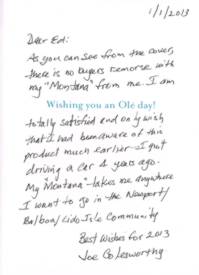 1/1/2013
Dear Ed:
As you can see from the cover,
there is no buyers remorse with
my "Montana" from me. I am
Wishing you an Olé day!
totally satisfied and only wish
that I had been aware of this
product much earlier - I quit
driving a car 4 years ago.
My "Montana" takes me anywhere
I want to go in the Newport/
Balboa/Lido Isle Community
Best Wishes for 2013
Joe Colesworthy